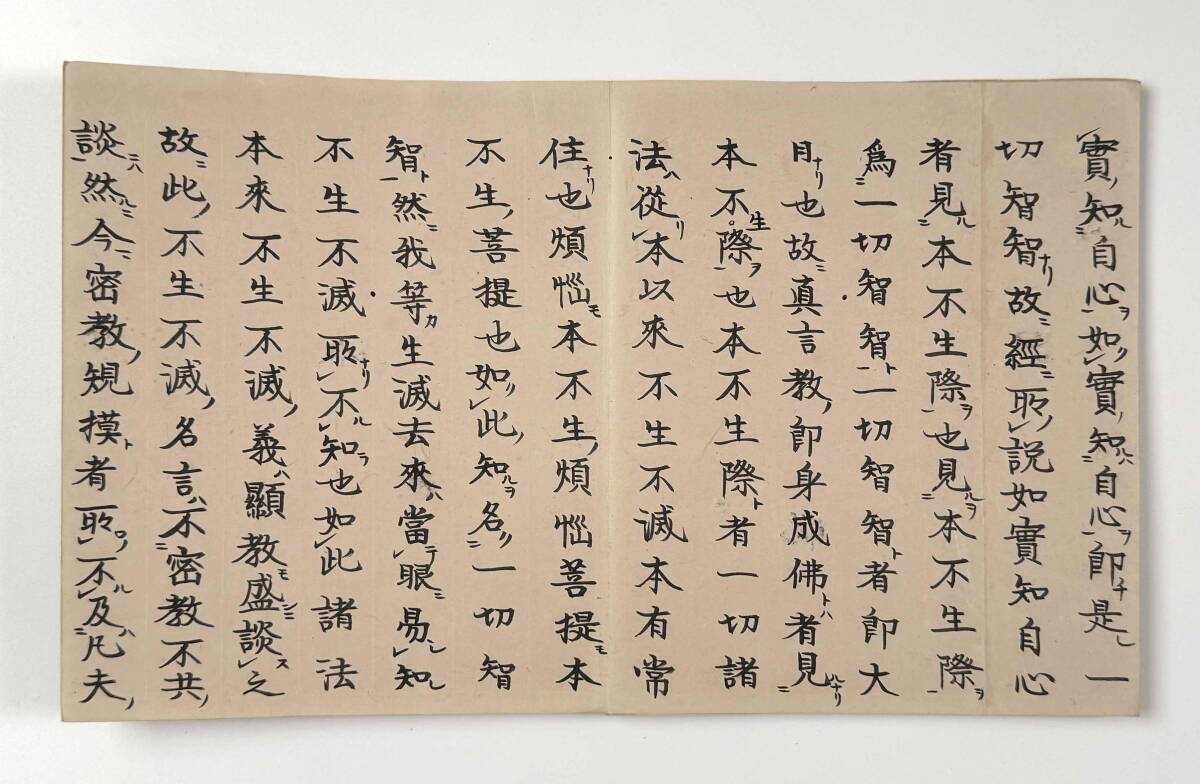 實知自心如實知自心即是一
切智智故經所說如實知自心
者見本不生際也見本不生際
爲一切智智一切智智者即大
日也故真言教即身成佛者見
本不生際也本不生際者一切諸
法從本以來不生不滅本有常
住也煩惱本不生煩惱菩提本
不生菩提也如此知名一切智
智然我等生滅去來當眼易知
不生不滅所不知也如此諸法
本來不生不滅義顯教盛談之
故此不生不滅名言不密教不共
談然今密教規摸者所不及凡夫